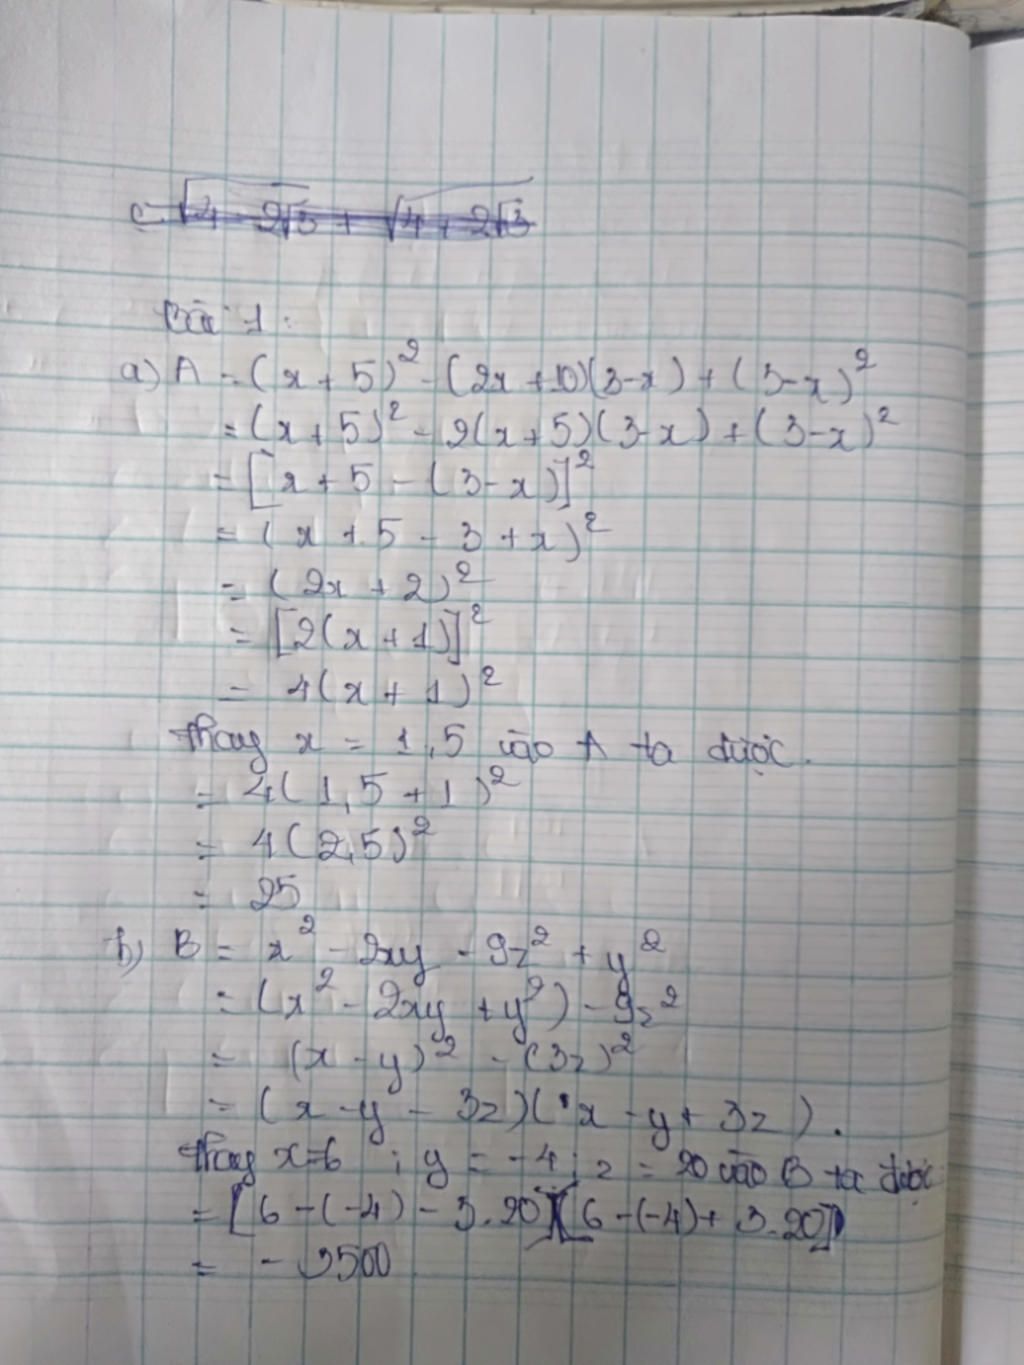 C = √4 - 2√3 + √4 + 2√3
Bài 1:
a) A = (x + 5)² - (2x + 10)(3 - x) + (3 - x)²
= (x + 5)² - 2(x + 5)(3 - x) + (3 - x)²
= [x + 5 - (3 - x)]²
= (x + 5 - 3 + x)²
= (2x + 2)²
= [2(x + 1)]²
= 4(x + 1)²
Thay x = 1,5 vào A ta được.
= 4(1,5 + 1)²
= 4(2,5)²
= 25
b) B = x² - 2xy - 9z² + y²
= (x² - 2xy + y²) - 9z²
= (x - y)² - (3z)²
= (x - y - 3z)(x - y + 3z).
Thay x = 6 ; y = -4 ; z = 20 vào B ta được
= [6 - (-4) - 3.20][6 - (-4) + 3.20]
= - 3500